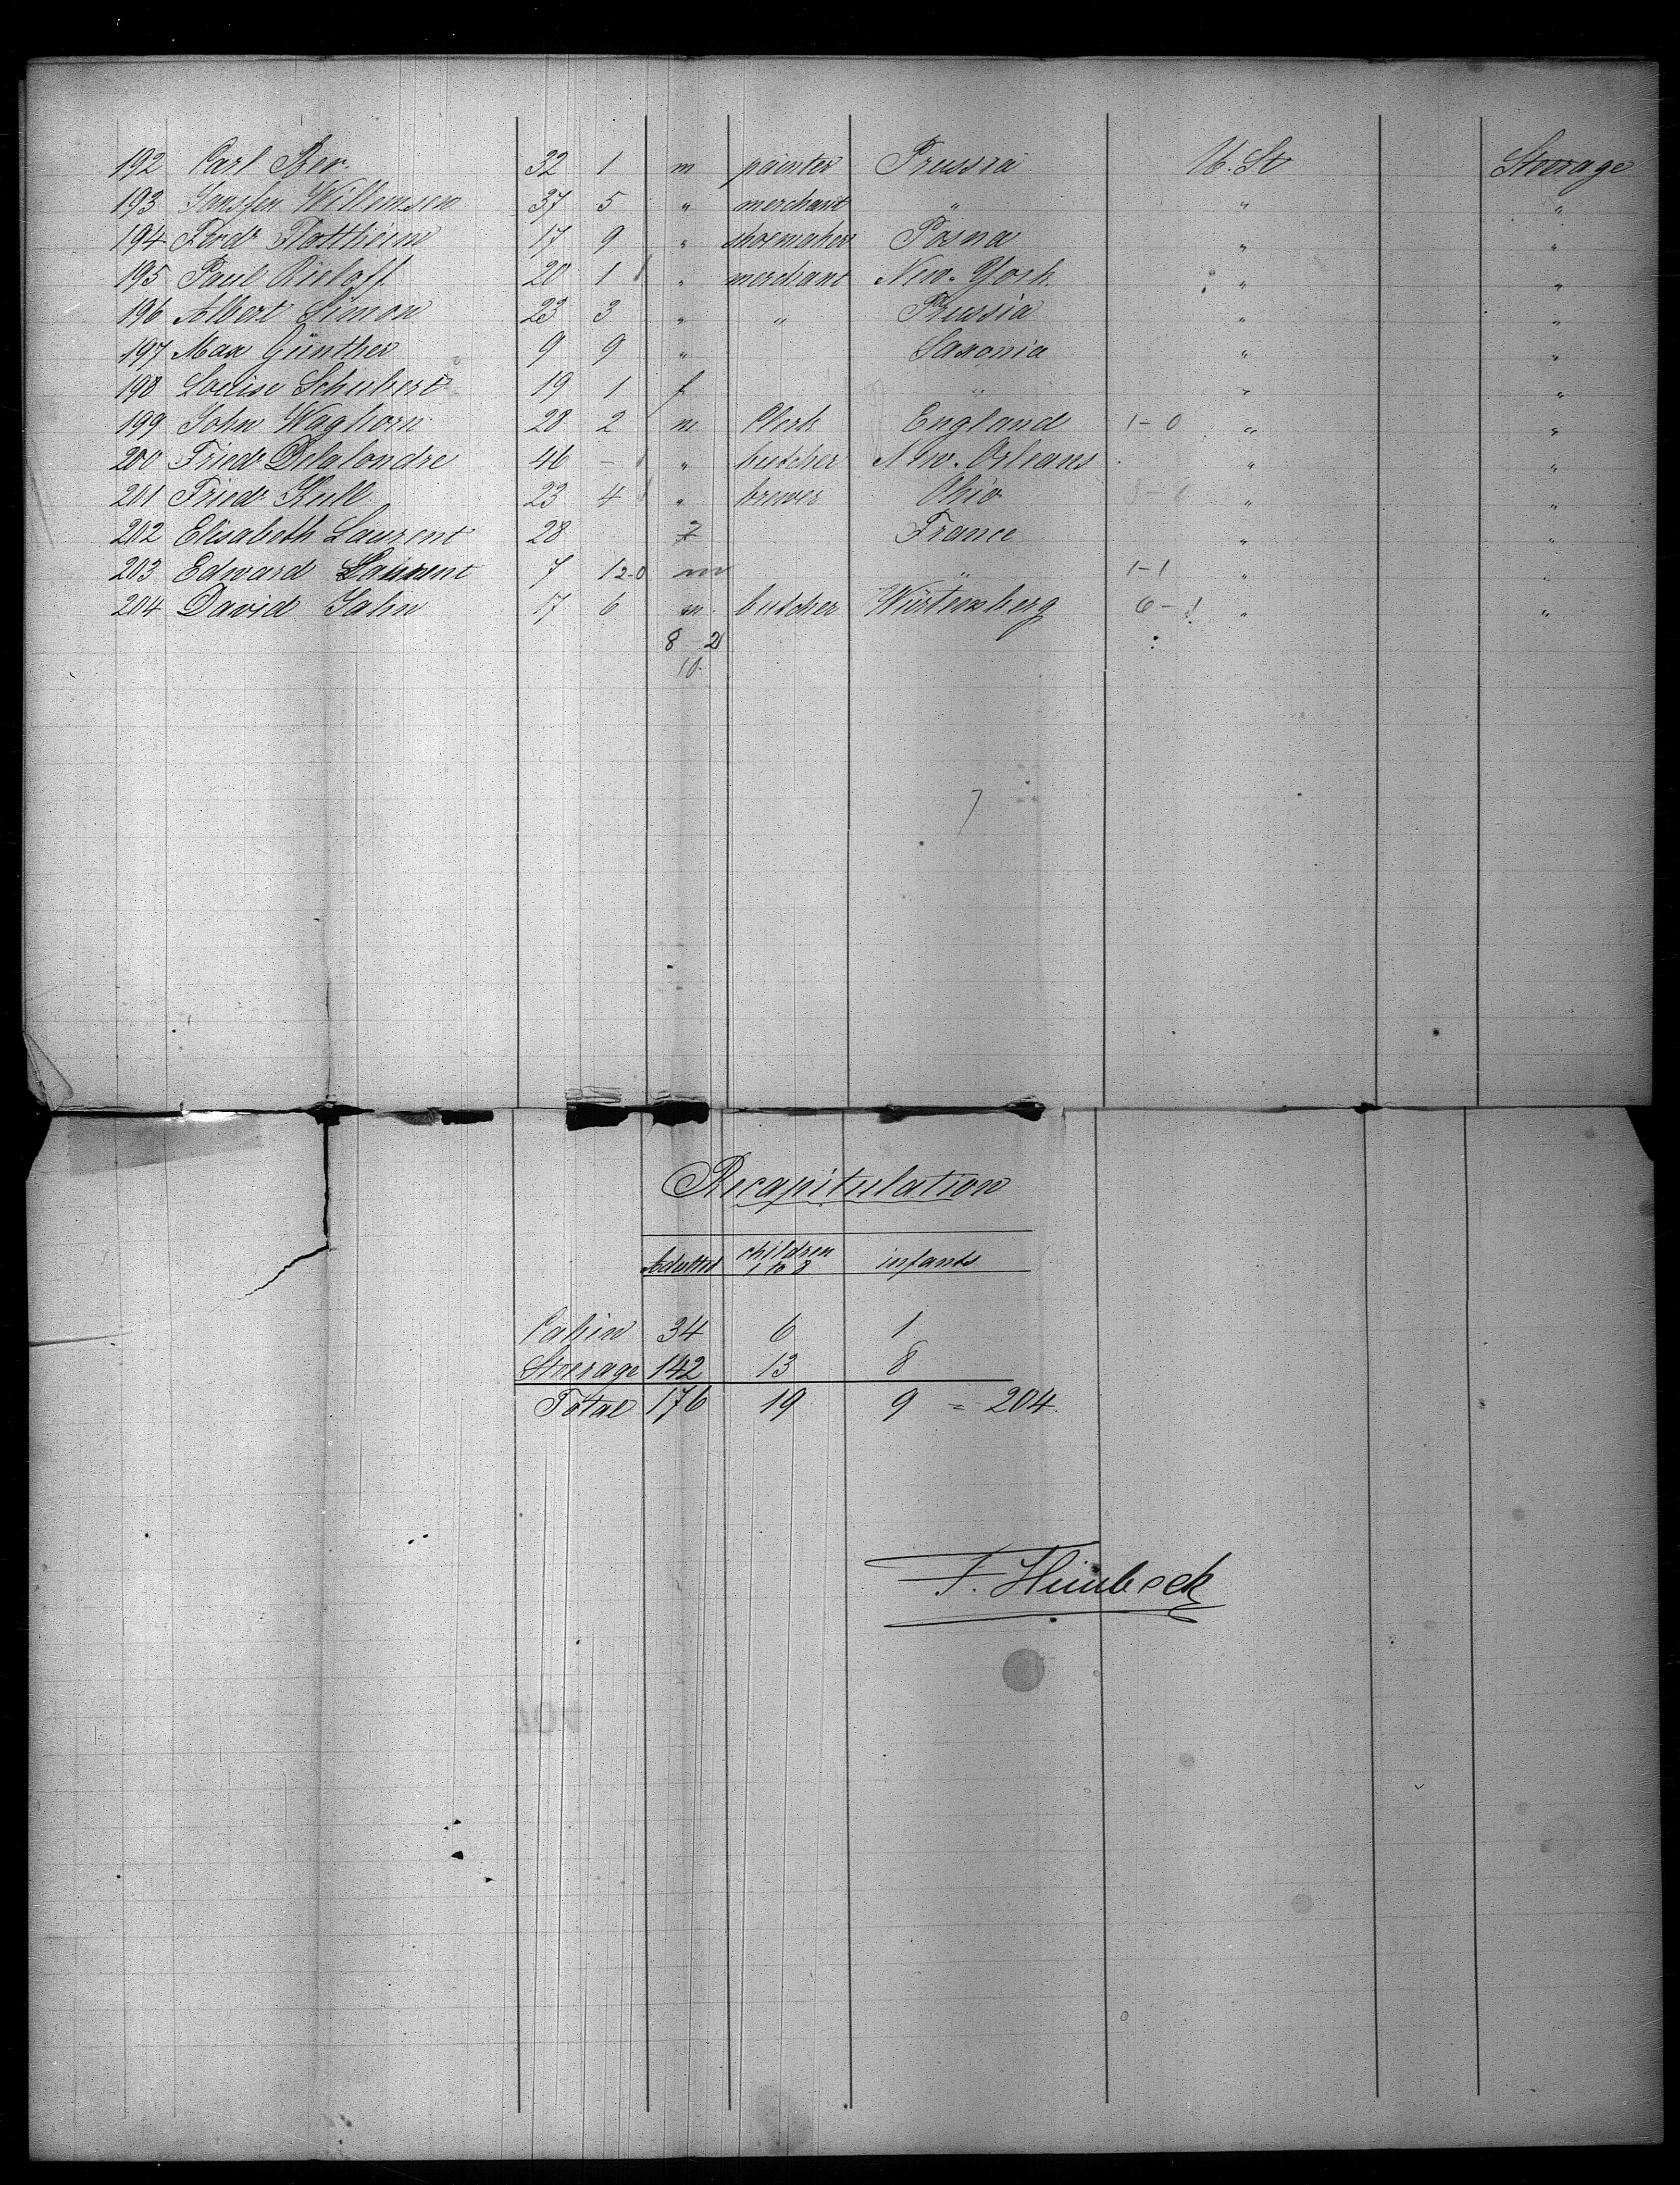 192 Carl Ber. 32 1 m painter Prussia U. St Steerage
193 Janssen Willemsen 37 5 " merchant " " "
194 Ferdr Flottheim 17 9 " shoemaker Posna " "
195 Paul Rieloff 20 1 " merchant New-York " "
196 Albert Simon 23 3 " " Prussia " "
197 Max Günther 9 9 " Saxonia " "
198 Louise Schubert 19 1 f " " "
199 John Waghorn 28 2 m Clerk England 1-0 " "
200 Friedr Delalondre 46 - " butcher New-Orleans " "
201 Friedr Kull 23 4 " brewer Ohio " "
202 Elisabeth Laurent 28 France " "
203 Edward Laurent 7 12-0 m " 1-1 " "
204 David Jahn 17 6 m butcher Würtemberg 6- " "
8 2
10
7
Recapitulation
Adults children 1 to 8 infants
Cabin 34 6 1
Steerage 142 13 8
Total 176 19 9 = 204.
F. Himbeck